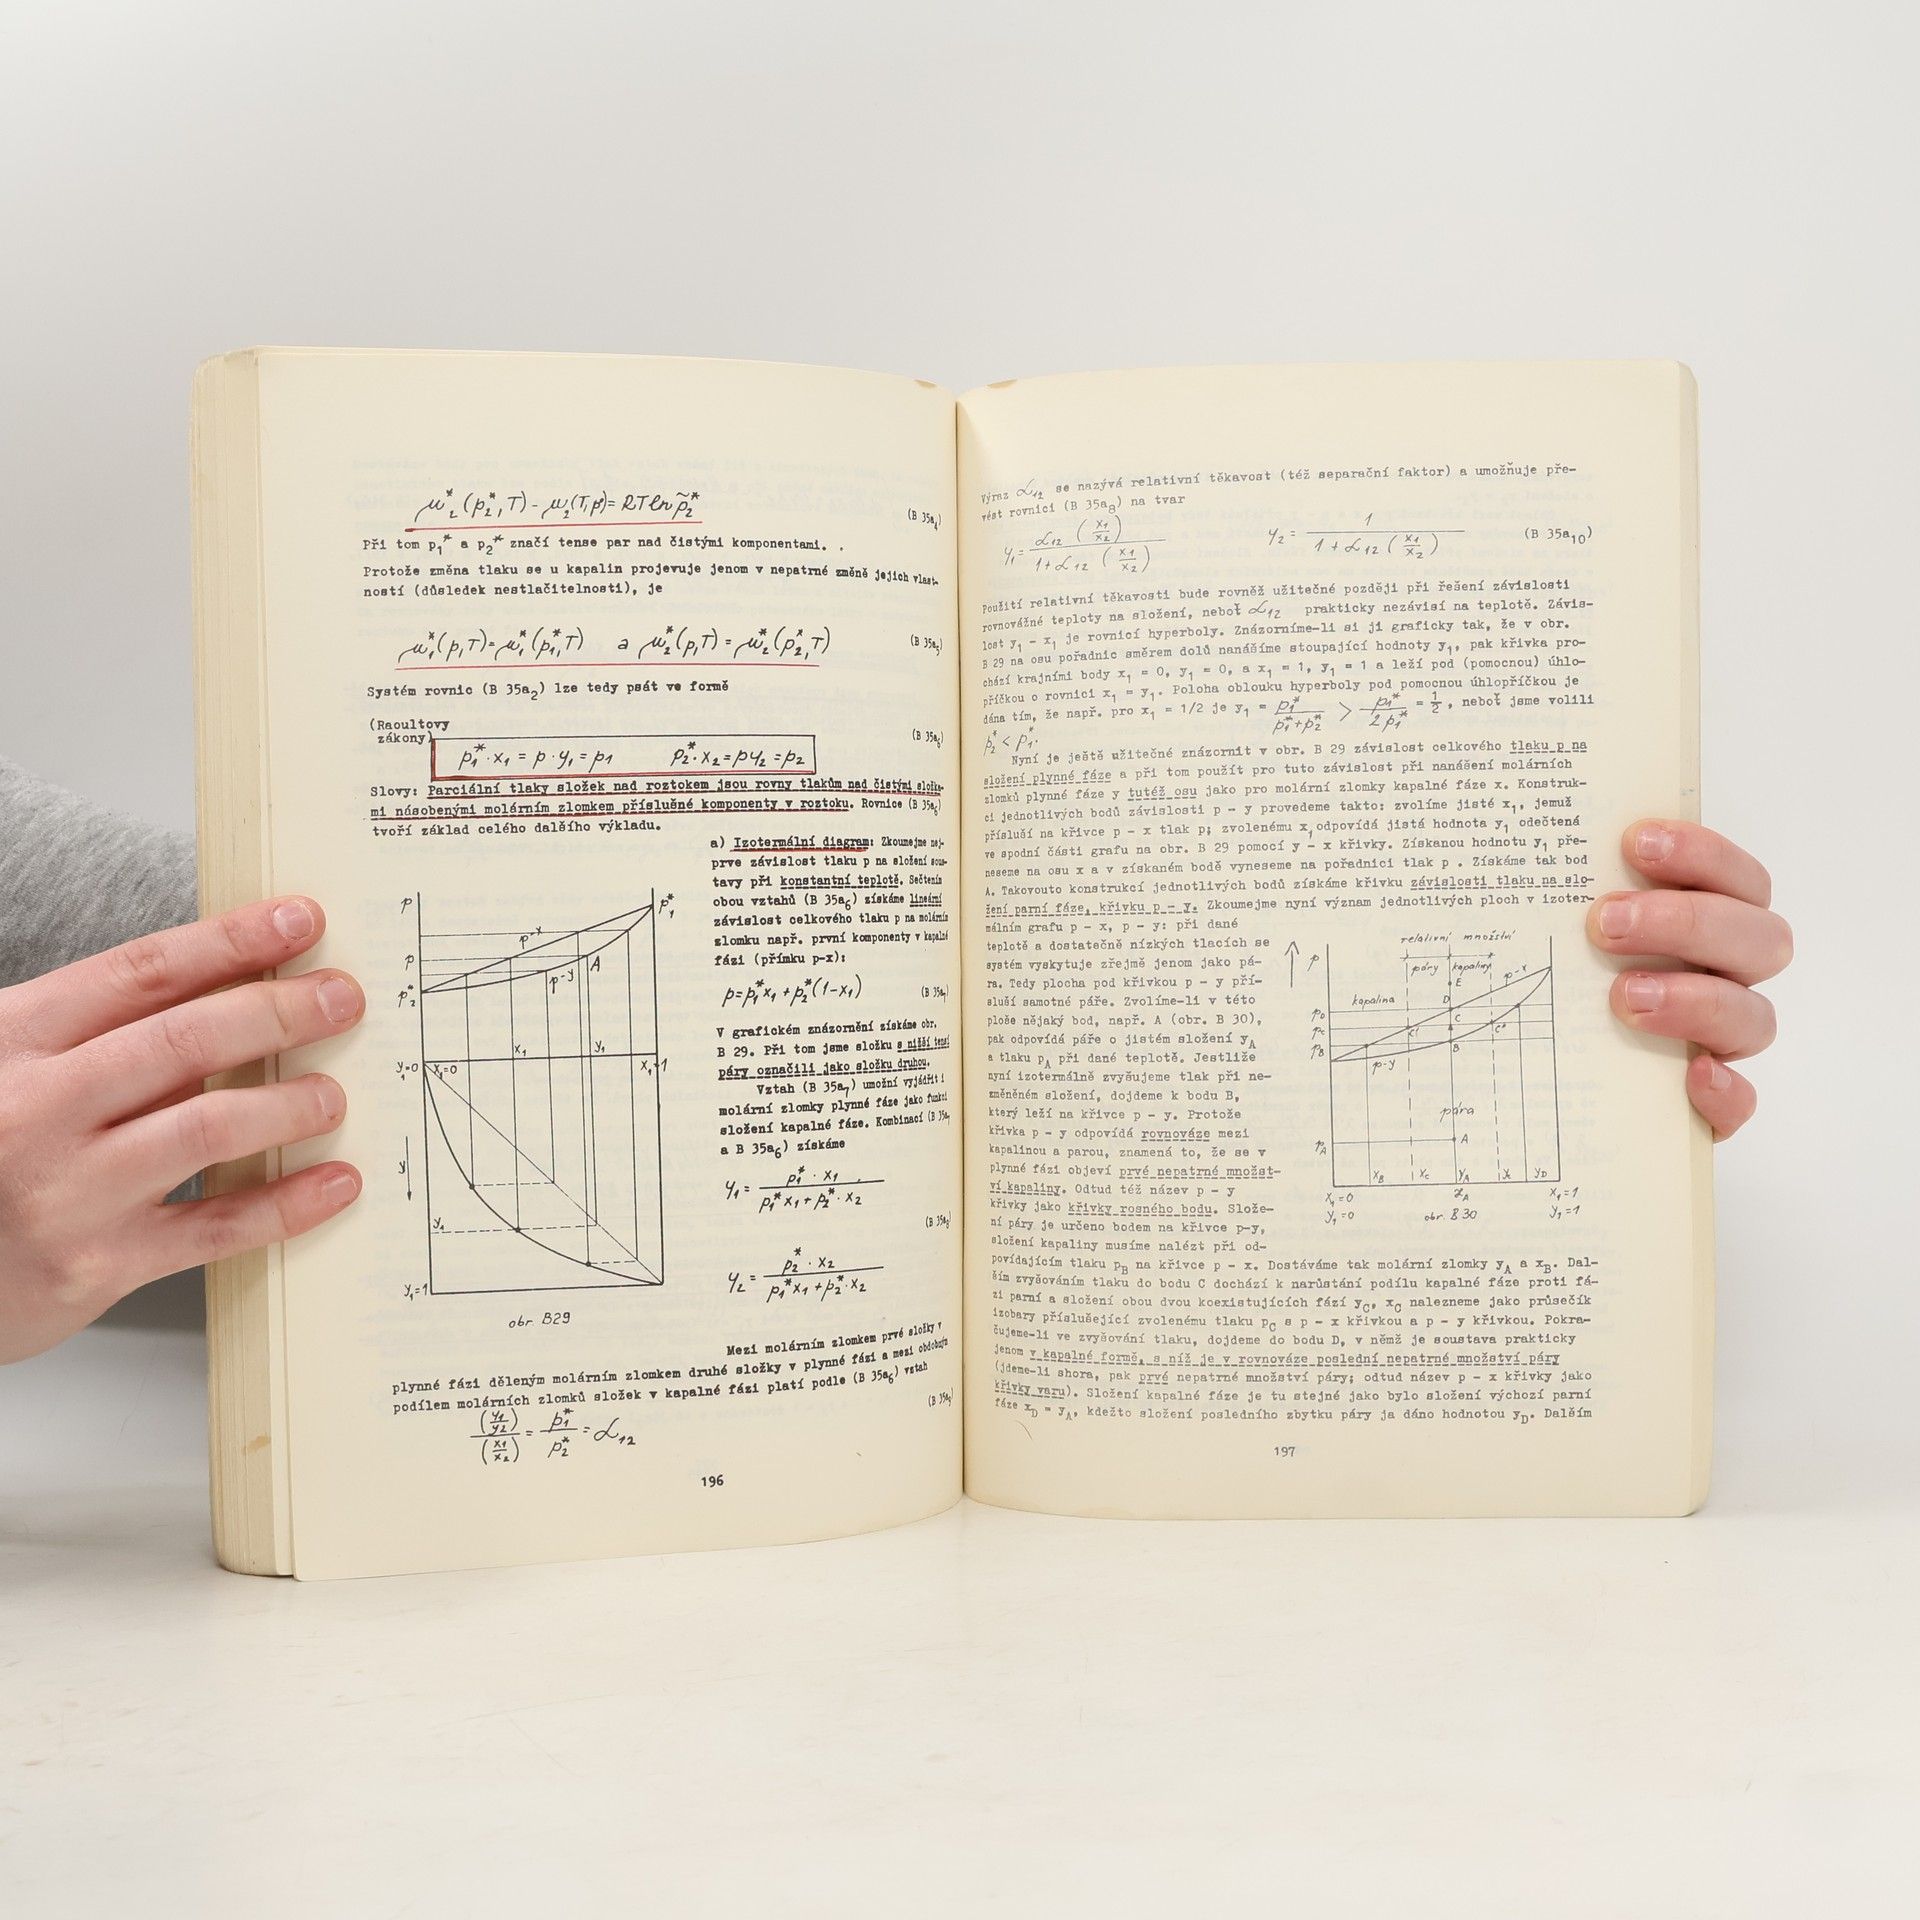 μ₂*(p₂*,T) - μ₂(T,p) = RT ln p̃₂* (B 35a₄)
Při tom p₁* a p₂* značí tense par nad čistými komponentami.
Protože změna tlaku se u kapalin projevuje jenom v nepatrné změně jejich vlast-
ností (důsledek nestlačitelnosti), je
μ₁*(p,T) = μ₁*(p₁*,T) a μ₂*(p,T) = μ₂*(p₂*,T) (B 35a₅)
Systém rovnic (B 35a₂) lze tedy psát ve formě
(Raoultovy
zákony) (B 35a₆)
p₁*·x₁ = p·y₁ = p₁ p₂*·x₂ = p y₂ = p₂
Slovy: Parciální tlaky složek nad roztokem jsou rovny tlakům nad čistými složka-
mi násobenými molárním zlomkem příslušné komponenty v roztoku. Rovnice (B 35a₆)
tvoří základ celého dalšího výkladu.
a) Izotermální diagram: Zkoumejme nej-
prve závislost tlaku p na složení sous-
tavy při konstantní teplotě. Sečtením
obou vztahů (B 35a₆) získáme lineární
závislost celkového tlaku p na molárním
zlomku např. první komponenty v kapalné
fázi (přímku p-x):
p = p₁*x₁ + p₂*(1-x₁) (B 35a₇)
V grafickém znázornění získáme obr.
B 29. Při tom jsme složku s nižší tensí
páry označili jako složku druhou.
Vztah (B 35a₇) umožní vyjádřit i
molární zlomky plynné fáze jako funkci
složení kapalné fáze. Kombinací (B 35a₇
a B 35a₆) získáme
y₁ = p₁*·x₁ / (p₁*x₁ + p₂*·x₂)
(B 35a₈)
y₂ = p₂*·x₂ / (p₁*x₁ + p₂*·x₂)
p
p₁*
p-x
p
A
p-y
p₂*
x₁ y₁
y₁=0 x₁=0 x₁=1
y
y₁
y₁=1
obr. B29
Mezi molárním zlomkem prvé složky v
plynné fázi děleným molárním zlomkem druhé složky v plynné fázi a mezi obdobným
podílem molárních zlomků složek v kapalné fázi platí podle (B 35a₆) vztah
(B 35a₉)
(y₁/y₂) / (x₁/x₂) = p₁*/p₂* = α₁₂
196
Výraz α₁₂ se nazývá relativní těkavost (též separační faktor) a umožňuje pře-
vést rovnici (B 35a₈) na tvar
y₁ = α₁₂(x₁/x₂) / (1+α₁₂(x₁/x₂)) y₂ = 1 / (1+α₁₂(x₁/x₂)) (B 35a₁₀)
Použití relativní těkavosti bude rovněž užitečné později při řešení závislosti
rovnovážné teploty na složení, neboť α₁₂ prakticky nezávisí na teplotě. Závis-
lost y₁ - x₁ je rovnicí hyperboly. Znázorníme-li si ji graficky tak, že v obr.
B 29 na osu pořadnic směrem dolů nanášíme stoupající hodnoty y₁, pak křivka pro-
chází krajními body x₁ = 0, y₁ = 0, a x₁ = 1, y₁ = 1 a leží pod (pomocnou) úhlo-
příčkou o rovnici x₁ = y₁. Poloha oblouku hyperboly pod pomocnou úhlopříčkou je
dána tím, že např. pro x₁ = 1/2 je y₁ = p₁*/(p₁*+p₂*) > p₁*/2p₁* = 1/2, neboť jsme volili
p₂* < p₁*.
Nyní je ještě užitečné znázornit v obr. B 29 závislost celkového tlaku p na
složení plynné fáze a při tom použít pro tuto závislost při nanášení molárních
zlomků plynné fáze y tutéž osu jako pro molární zlomky kapalné fáze x. Konstruk-
ci jednotlivých bodů závislosti p - y provedeme takto: zvolíme jisté x₁, jemuž
přísluší na křivce p - x tlak p; zvolenému x₁ odpovídá jistá hodnota y₁ odečtená
ve spodní části grafu na obr. B 29 pomocí y - x křivky. Získanou hodnotu y₁ pře-
neseme na osu x a v získaném bodě vyneseme na pořadnici tlak p . Získáme tak bod
A. Takovouto konstrukcí jednotlivých bodů získáme křivku závislosti tlaku na slo-
žení parní fáze, křivku p - y. Zkoumejme nyní význam jednotlivých ploch v izoter-
málním grafu p - x, p - y: při dané
teplotě a dostatečně nízkých tlacích se
systém vyskytuje zřejmě jenom jako pá-
ra. Tedy plocha pod křivkou p - y pří-
sluší samotné páře. Zvolíme-li v této
ploše nějaký bod, např. A (obr. B 30),
pak odpovídá páře o jistém složení y_A
a tlaku p_A při dané teplotě. Jestliže
nyní izotermálně zvyšujeme tlak při ne-
změněném složení, dojdeme k bodu B,
který leží na křivce p - y. Protože
křivka p - y odpovídá rovnováze mezi
kapalinou a parou, znamená to, že se v
plynné fázi objeví prvé nepatrné množst-
ví kapaliny. Odtud též název p - y
křivky jako křivky rosného bodu. Slože-
ní páry je určeno bodem na křivce p-y,
složení kapaliny musíme nalézt při od-
povídajícím tlaku p_B na křivce p - x. Dostáváme tak molární zlomky y_A a x_B. Dal-
ším zvyšováním tlaku do bodu C dochází k narůstání podílu kapalné fáze proti fá-
zi parní a složení obou dvou koexistujících fází y_C, x_C nalezneme jako průsečík
izobary příslušející zvolenému tlaku p_C s p - x křivkou a p - y křivkou. Pokra-
čujeme-li ve zvyšování tlaku, dojdeme do bodu D, v němž je soustava prakticky
jenom v kapalné formě, s níž je v rovnováze poslední nepatrné množství páry
(jdeme-li shora, pak prvé nepatrné množství páry; odtud název p - x křivky jako
křivky varu). Složení kapalné fáze je tu stejné jako bylo složení výchozí parní
fáze x_D = y_A, kdežto složení posledního zbytku páry ja dáno hodnotou y_D. Dalším
relativní množství
p páry kapaliny p-x
E
kapalina D
p_D
p_C C' C C"
p_B B
p-y
pára
p_A A
x_B x_C y_A y_C y_D
x₁=0 z_A x₁=1
y₁=0 obr. B30 y₁=1
197